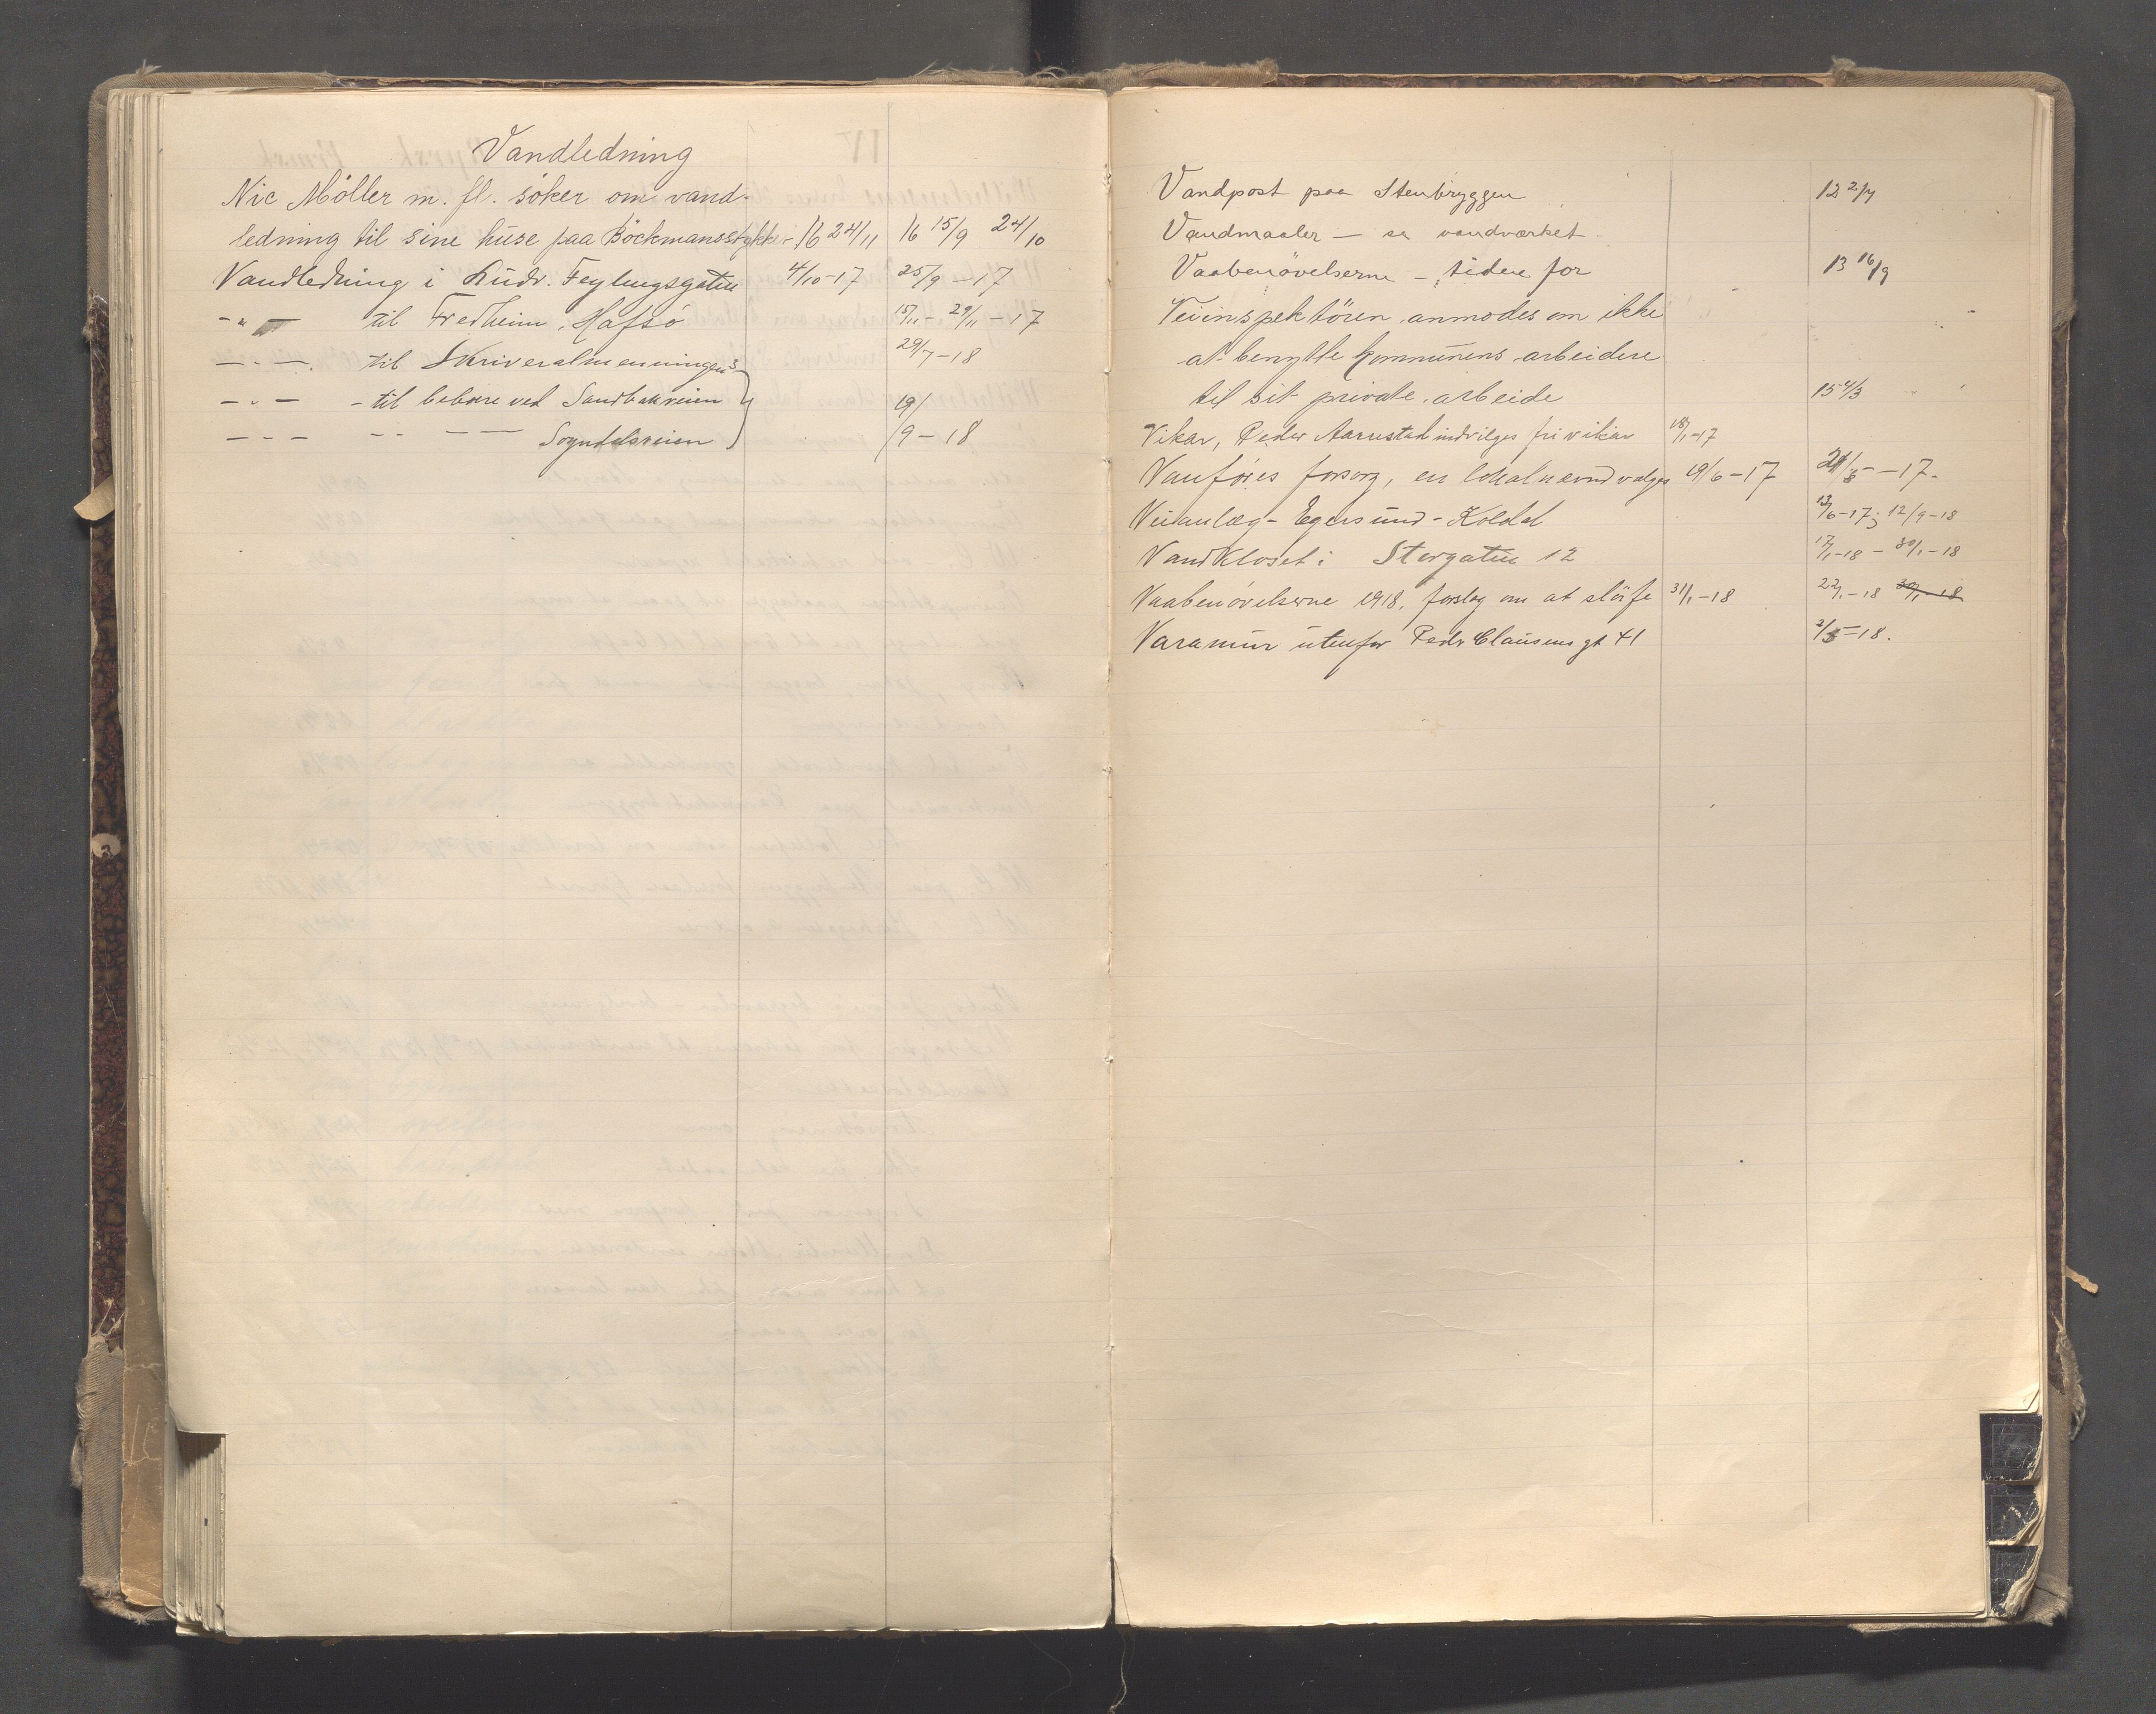 Vandledning
Nic Möller m. fl. söker om vand-
ledning til sine huse paa Böckmansstykker 16 24/11 16 15/9 24/10
Vandledning i Ludv. Feylingsgaten 4/10-17 25/9-17
-"- til Fredheim, Hafsö 15/11 - 29/11 - 17
- " - til Skriveralmenningen 3 29/7-18
- " - - til beboere ved Sandbakveien 19/
- - - -- -- Sogndalsveien 9-18
Vandpost paa Stenbryggen 12 2/7
Vandmaaler - se vandværket
Vaabenövelserne - tiden for 13 16/9
Veiinspektören anmodes om ikke
at benytte kommunens arbeidere
til sit private arbeide 15 4/3
Vikar, Peder Aarrestad indvilges fri vikar 18/1-17
Vanföres forsorg, en lokalnevnd valges 19/6-17 21/5-17.
Veianlæg - Egersund - Koldal 13/6-17; 12/9-18
Vandkloset i Storgaten 12 17/1-18 - 30/1-18
Vaabenövelserne 1918, forslag om at slöife 31/1-18 22/1-18 30/1-18
Varamur utenfor Pedr Clausens gt 41 2/5-18.